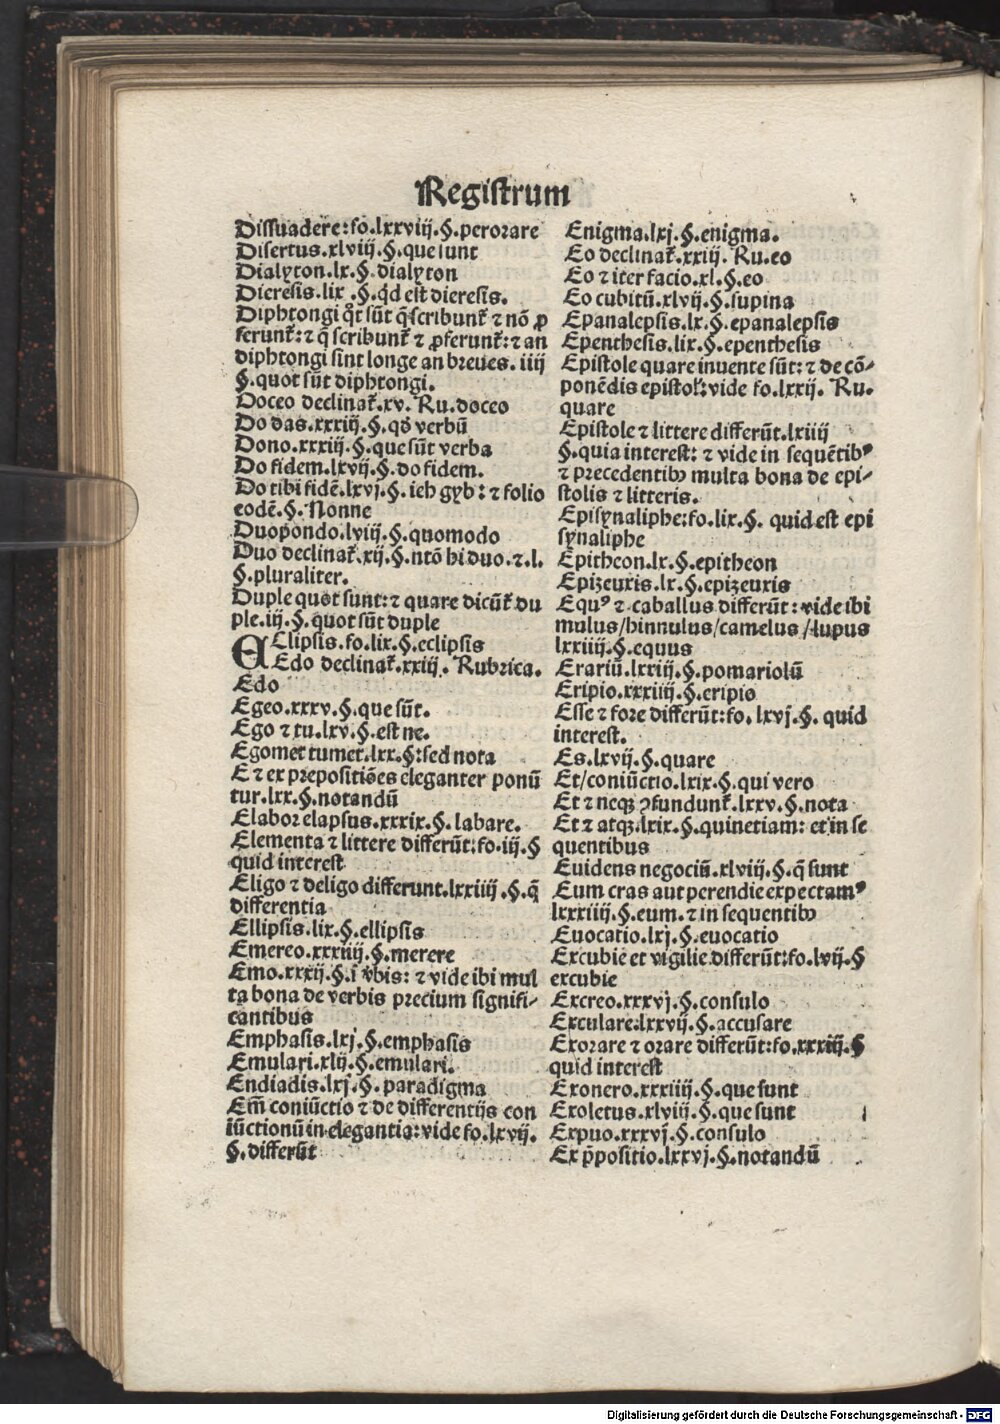 Registrum
Dissuadere: fo.lxxviij.§.perorare
Disertus.xlviij.§.que sunt
Dialyton.lx.§.dialyton
Dieresis.lix.§.qd est dieresis.
Diphtongi qt sūt q̄ scribunt᷑ ⁊ nō ꝓ
ferunt᷑: ⁊ q̄ scribunt᷑ ⁊ ꝓferunt᷑: ⁊ an
diphtongi sint longe an breues. iiij
§.quot sūt diphtongi.
Doceo declinat᷑.xv. Ru.doceo
Do das.xxxiij.§.qđ verbū
Dono.xxxiij.§.que sūt verba
Do fidem.lxvij.§.do fidem.
Do tibi fidē.lxvj.§. ich gyb: ⁊ folio
eodē.§.Nonne
Duopondo.lviij.§.quomodo
Duo declinat᷑.xij.§.ntō hi duo.⁊.l.
§.pluraliter.
Duple quot sunt: ⁊ quare dicūt᷑ du
ple.iij.§.quot sūt duple
EClipsis.fo.lix.§.eclipsis
Edo declinat᷑.xxiij. Rubrica.
Edo
Egeo.xxxv.§.que sūt.
Ego ⁊ tu.lxv.§.est ne.
Egomet tumet.lxx.§:sed nota
E ⁊ ex prepositiōes eleganter ponū
tur.lxx.§.notandū
Elabor elapsus.xxxix.§.labare.
Elementa ⁊ littere differūt:fo.iij.§
quid interest
Eligo ⁊ deligo differunt.lxxiiij.§.q̄
differentia
Ellipsis.lix.§.ellipsis
Emereo.xxxiiij.§.merere
Emo.xxxij.§.ī v̄bis: ⁊ vide ibi mul
ta bona de verbis precium signifi-
cantibus
Emphasis.lxj.§.emphasis
Emulari.xlij.§.emulari.
Endiadis.lxj.§.paradigma
Em̄ coniūctio ⁊ de differentijs con
iūctionū in elegantia:vide fo.lxvij.
§.differūt
Enigma.lxj.§.enigma.
Eo declinat᷑.xxiij. Ru.eo
Eo ⁊ iter facio.xl.§.eo
Eo cubitū.xlvij.§.supina
Epanalepsis.lx.§.epanalepsis
Epenthesis.lix.§.epenthesis
Epistole quare inuente sūt: ⁊ de cō-
ponēdis epistol̓:vide fo.lxxij. Ru.
quare
Epistole ⁊ littere differūt.lxiiij
§.quia interest: ⁊ vide in sequētibꝰ
⁊ precedentibꝫ multa bona de epi-
stolis ⁊ litteris.
Episynaliphe:fo.lix.§. quid est epi
synaliphe
Epitheon.lx.§.epitheon
Epizeuxis.lx.§.epizeuxis
Equꝰ ⁊ caballus differūt: vide ibi
mulus/hinnulus/camelus/lupus
lxxiiij.§.equus
Erariū.lxxiij.§.pomariolū
Eripio.xxxiiij.§.eripio
Esse ⁊ fore differūt:fo.lxvj.§. quid
interest.
Es.lxvij.§.quare
Et/coniūctio.lxix.§.qui vero
Et ⁊ neqꝫ ꝯfundunt᷑.lxxv.§.nota
Et ⁊ atqꝫ.lxix.§.quinetiam: et in se
quentibus
Euidens negociū.xlviij.§.q̄ sunt
Eum cras aut perendie expectamꝰ
lxxxiiij.§.eum.⁊ in sequentibꝫ
Euocatio.lxj.§.euocatio
Excubie et vigilie differūt:fo.lvij.§
excubie
Excreo.xxxvj.§.consulo
Exculare.lxxvij.§.accusare
Exorare ⁊ orare differūt:fo.xxxiij.§
quid interest
Exonero.xxxiiij.§.que sunt
Exoletus.xlviij.§.que sunt
Expuo.xxxvj.§.consulo
Ex p̄positio.lxxvj.§.notandū
Digitalisierung gefördert durch die Deutsche Forschungsgemeinschaft - DFG